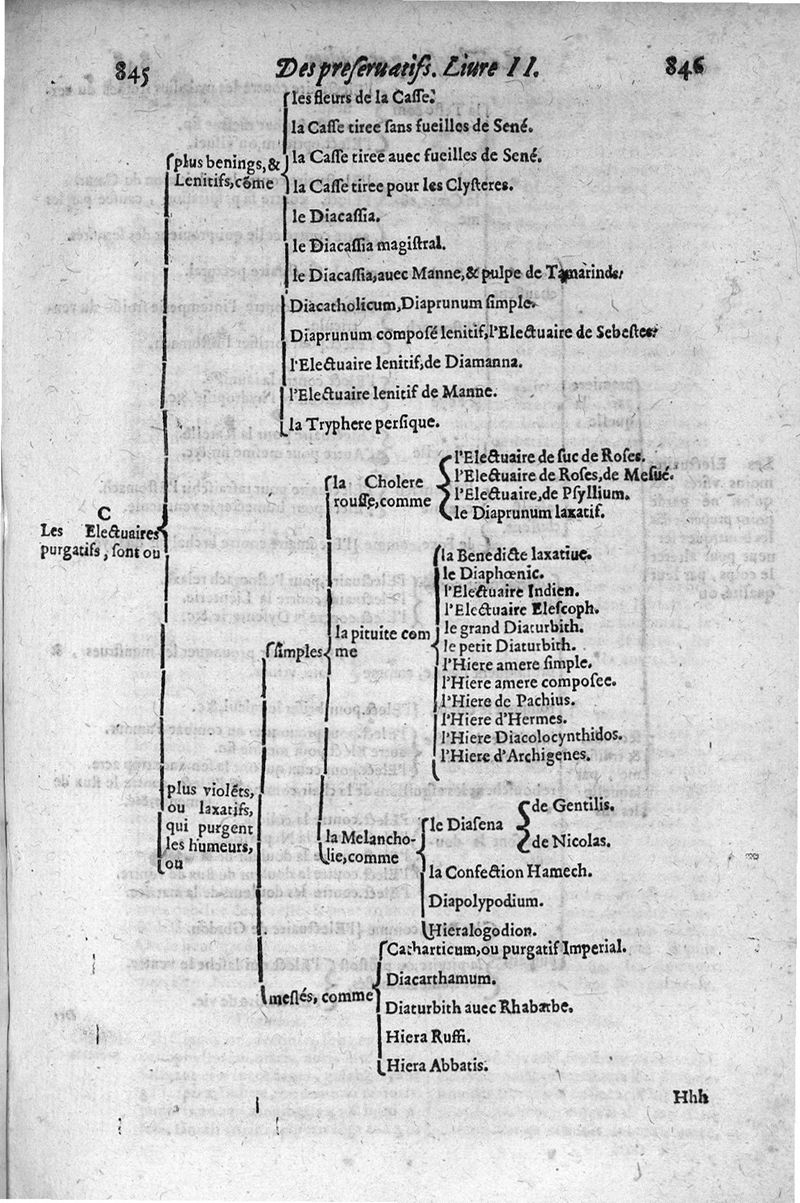 845 Des preſeruatifs. Liure II. 846
C
Les Electuaires
purgatifs, ſont ou
plus benings, &
Lenitifs, cõme
les fleurs de la Caſſe.
la Caſſe tiree ſans fueilles de Sené.
la Caſſe tiree auec fueilles de Sené.
la Caſſe tiree pour les Clyſteres.
le Diacaſſia.
le Diacaſſia magiſtral.
le Diacaſſia, auec Manne, & pulpe de Tamarinds.
Diacatholicum, Diaprunum ſimple.
Diaprunum compoſé lenitif, l'Electuaire de Sebeſtes.
l'Electuaire lenitif, de Diamanna.
l'Electuaire lenitif de Manne.
la Tryphere perſique.
plus violẽts,
ou laxatifs,
qui purgent
les humeurs,
ou
ſimples
la Cholere
rouſſe, comme
l'Electuaire de ſuc de Roſes.
l'Electuaire de Roſes, de Meſué.
l'Electuaire, de Pſyllium.
le Diaprunum laxatif.
la pituite com
me
la Benedicte laxatiue.
le Diaphœnic.
l'Electuaire Indien.
l'Electuaire Eleſcoph.
le grand Diaturbith.
le petit Diaturbith.
l'Hiere amere ſimple.
l'Hiere amere compoſee.
l'Hiere de Pachius.
l'Hiere d'Hermes.
l'Hiere Diacolocynthidos.
l'Hiere d'Archigenes.
la Melancho-
lie, comme
le Diaſena
de Gentilis.
de Nicolas.
la Confection Hamech.
Diapolypodium.
Hieralogodion.
meſlés, comme
Catharticum, ou purgatif Imperial.
Diacarthamum.
Diaturbith auec Rhabarbe.
Hiera Ruffi.
Hiera Abbatis.
Hhh